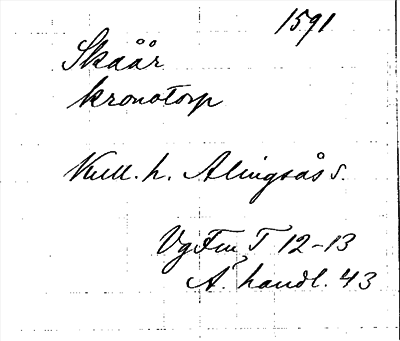 1591
Skåår
kronotorp
Kull. h. Alingsås s.
Vg Fm T 12-13
Ä handl. 43